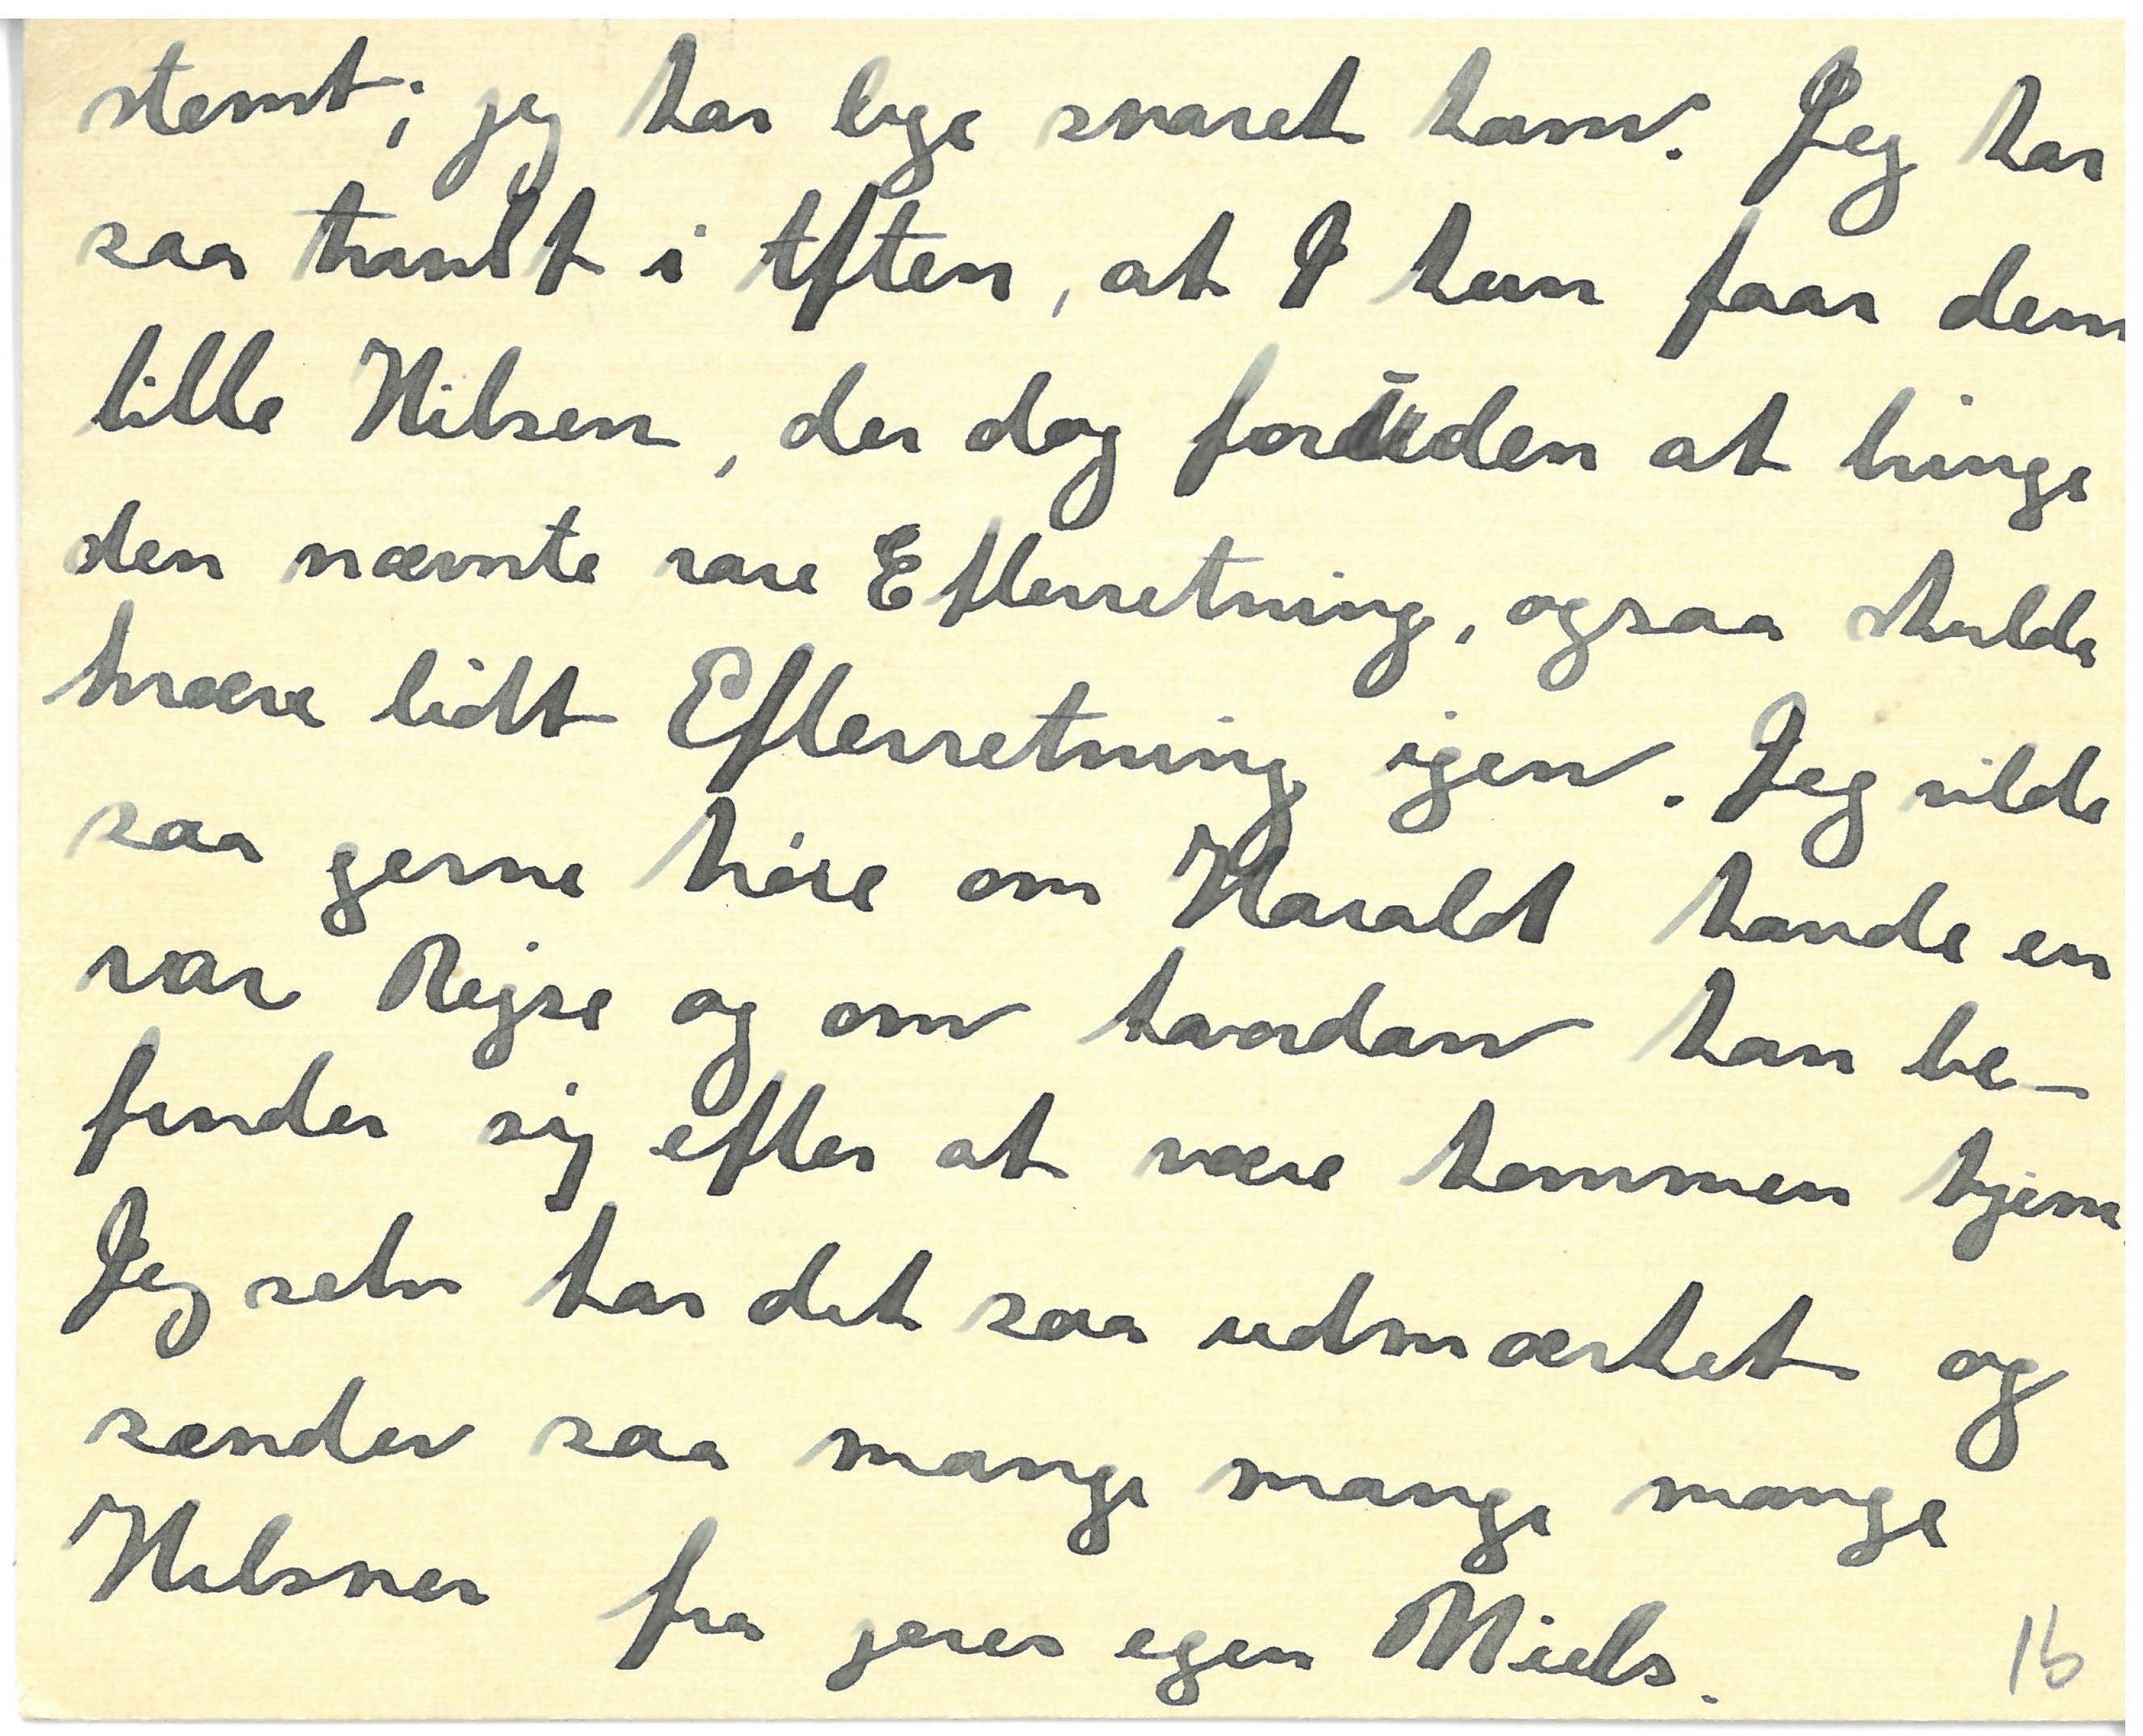 stemt; jeg har lige svaret ham. Jeg har
saa travlt i Aften, at I kun faar den
lille Hilsen, der dog foruden at bringe
den nævnte rare Efterretning, ogsaa skulde
kræve lidt Efterretning igen. Jeg vilde
saa gerne høre om Harald havde en
rar Rejse og om hvordan han be-
finder sig efter at være kommen hjem.
Jeg selv har det saa udmærket og
sender saa mange mange mange
Hilsner fra jeres egen Niels.
16